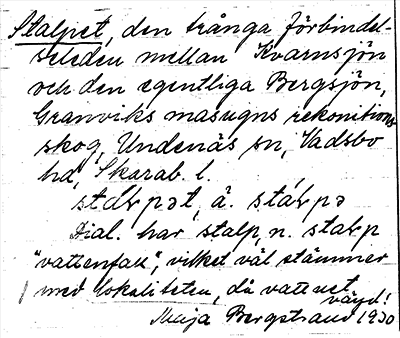 Stalpet, den trånga förbindel-
seleden mellan Kvarnsjön
och den egentliga Bergsjön,
Granviks masugns rekonitions
skog, Undenäs sn, Vadsbo
hd, Skarab. l.
stalpət, ä. stalpə
Dial. har stalp, n. stalp
"vattenfall", vilket väl stämmer
med lokaliteten, då vattnet
väyd!
Maja Bergstrand 1930